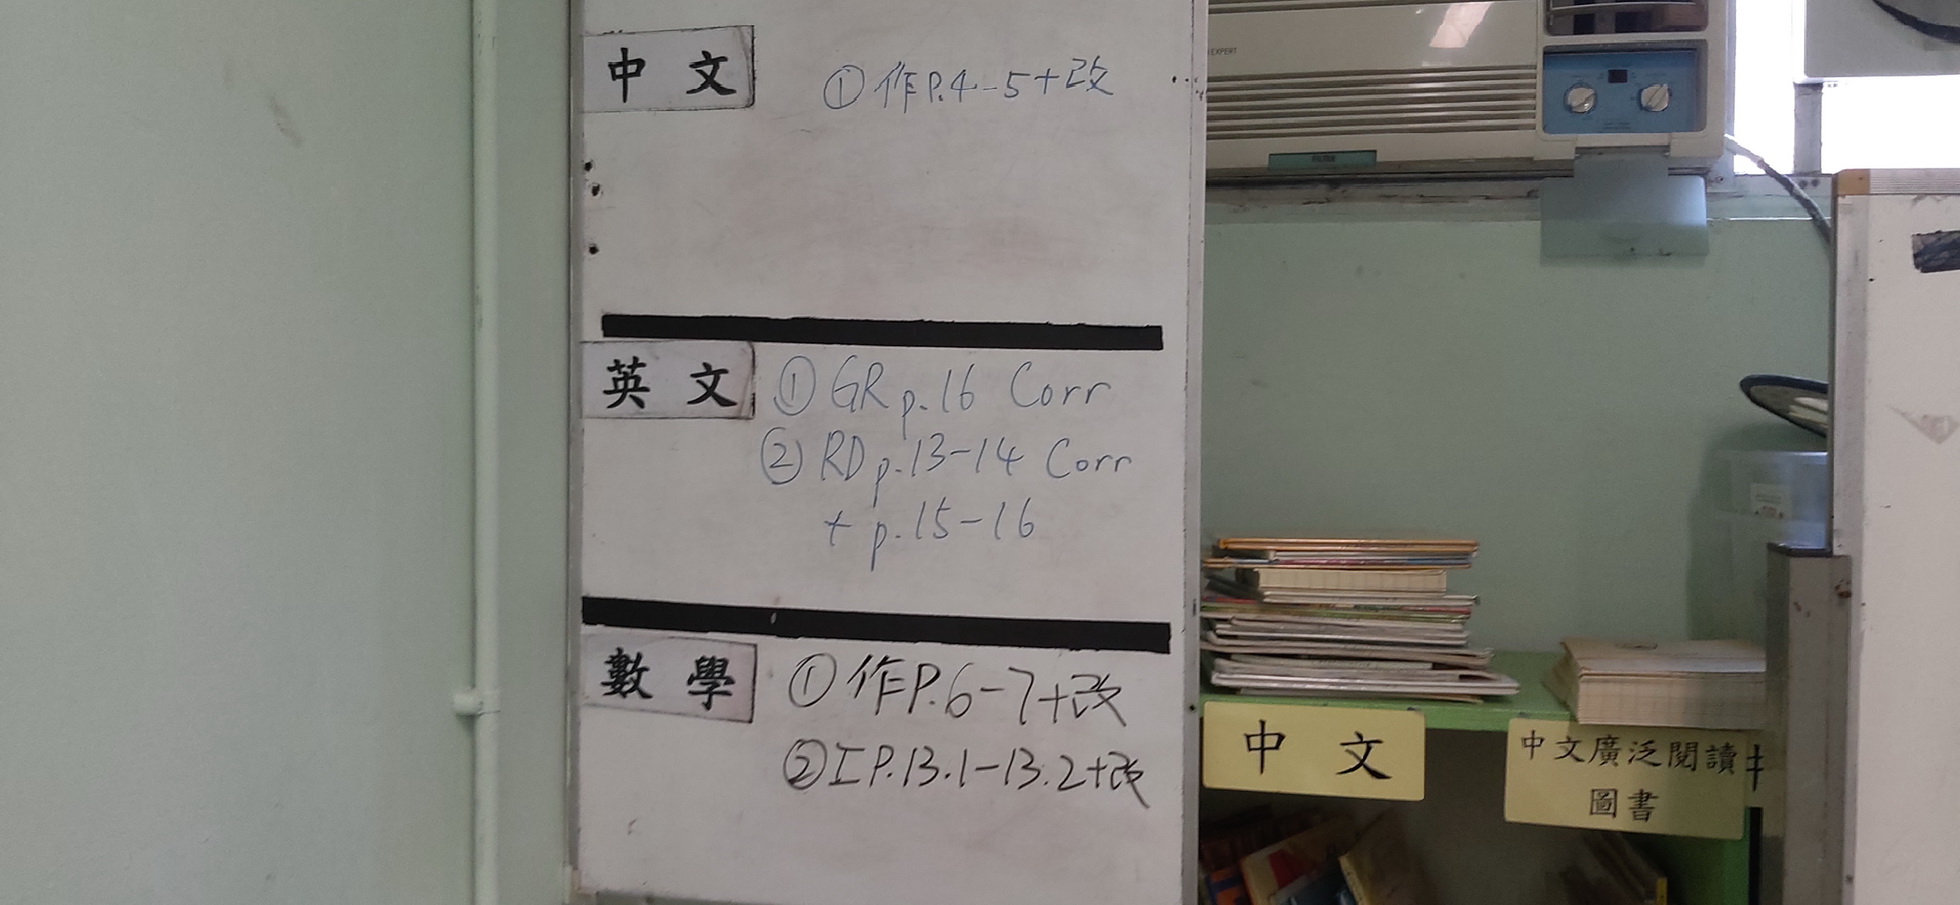 中文
①作P.4-5+改
英文
①GR p.16 Corr
②RD p.13-14 Corr
+ p.15-16
數學
①作P.6-7+改
②工P.13.1-13.2+改
EXPERT
FILTER
中文
中文廣泛閱讀
圖書